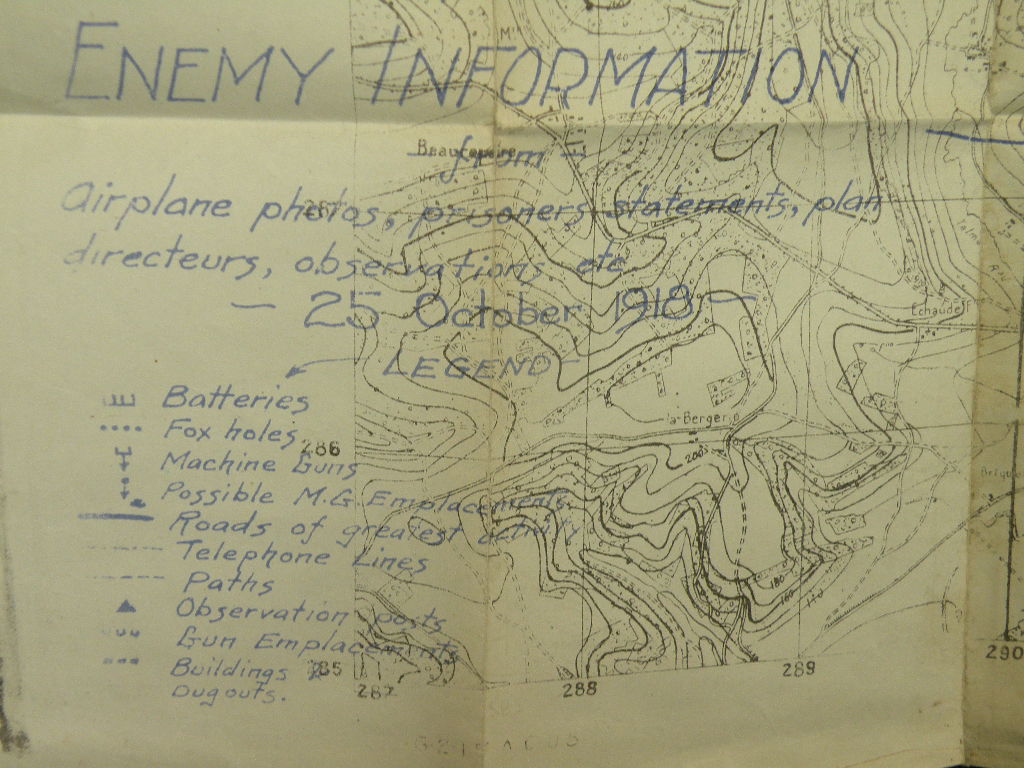 ENEMY INFORMATION
from -
Airplane photos, prisoners statements, plan
directeurs, observations, etc
- 25 October 1918 -
LEGEND
Batteries
Fox holes
Machine Guns
Possible M.G Emplacements
Roads of greatest activity
Telephone Lines
Paths
Observation posts
Gun Emplacements
Buildings &
Dugouts.
Beaurepaire
Echaude
la Bergerie
200
286
285
287
288
289
290